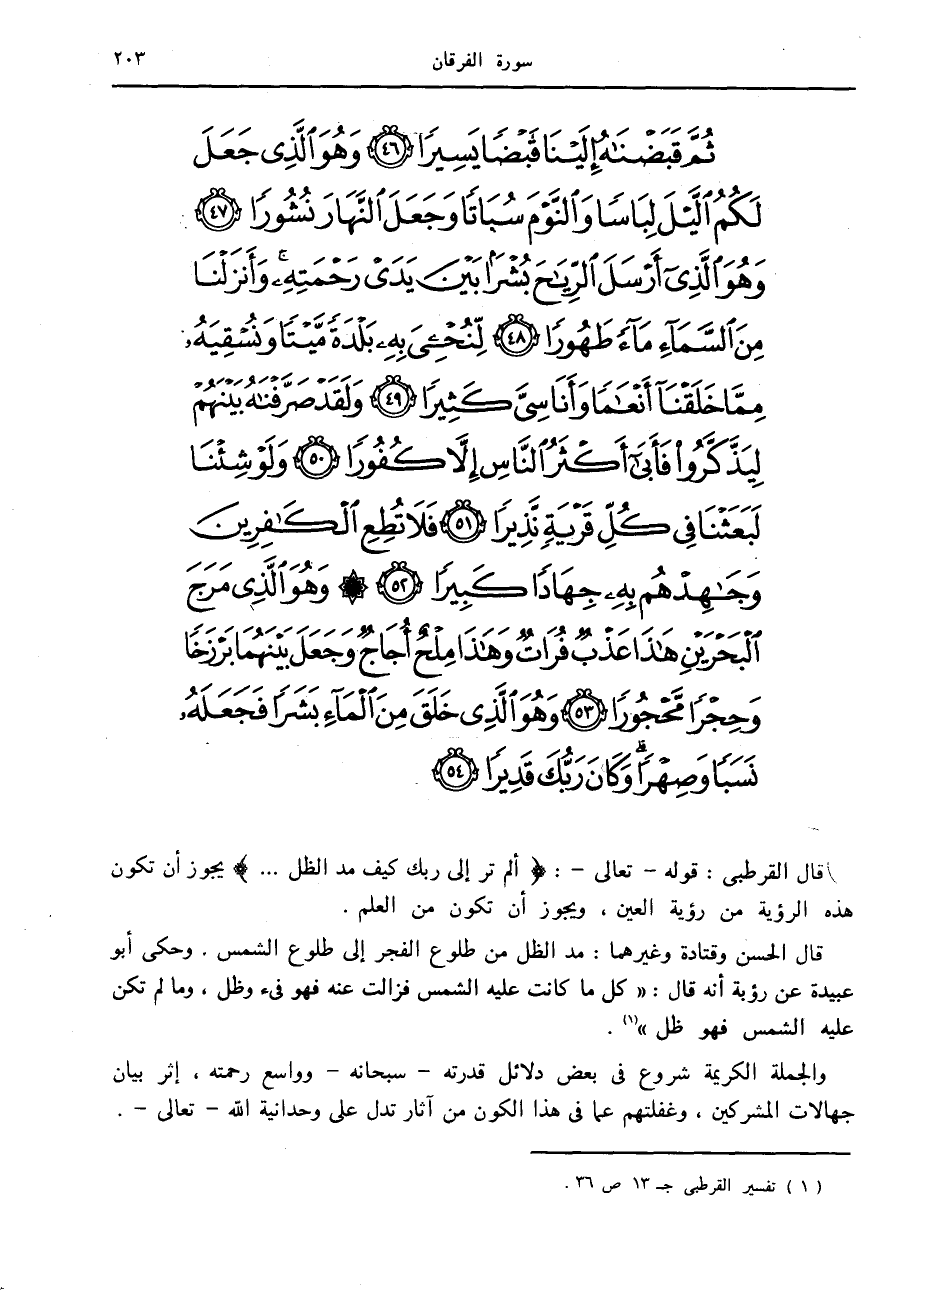 سورة الفرقان ٢٠٣
ثُمَّ قَبَضْنَٰهُ إِلَيْنَا قَبْضًا يَسِيرًا ٤٦ وَهُوَ ٱلَّذِى جَعَلَ
لَكُمُ ٱلَّيْلَ لِبَاسًا وَٱلنَّوْمَ سُبَاتًا وَجَعَلَ ٱلنَّهَارَ نُشُورًا ٤٧
وَهُوَ ٱلَّذِىٓ أَرْسَلَ ٱلرِّيَٰحَ بُشْرًۢا بَيْنَ يَدَىْ رَحْمَتِهِۦ ۚ وَأَنزَلْنَا
مِنَ ٱلسَّمَآءِ مَآءً طَهُورًا ٤٨ لِّنُحْـِۧىَ بِهِۦ بَلْدَةً مَّيْتًا وَنُسْقِيَهُۥ
مِمَّا خَلَقْنَآ أَنْعَٰمًا وَأَنَاسِىَّ كَثِيرًا ٤٩ وَلَقَدْ صَرَّفْنَٰهُ بَيْنَهُمْ
لِيَذَّكَّرُوا۟ فَأَبَىٰٓ أَكْثَرُ ٱلنَّاسِ إِلَّا كُفُورًا ٥٠ وَلَوْ شِئْنَا
لَبَعَثْنَا فِى كُلِّ قَرْيَةٍ نَّذِيرًا ٥١ فَلَا تُطِعِ ٱلْكَٰفِرِينَ
وَجَٰهِدْهُم بِهِۦ جِهَادًا كَبِيرًا ٥٢ ۞ وَهُوَ ٱلَّذِى مَرَجَ
ٱلْبَحْرَيْنِ هَٰذَا عَذْبٌ فُرَاتٌ وَهَٰذَا مِلْحٌ أُجَاجٌ وَجَعَلَ بَيْنَهُمَا بَرْزَخًا
وَحِجْرًا مَّحْجُورًا ٥٣ وَهُوَ ٱلَّذِى خَلَقَ مِنَ ٱلْمَآءِ بَشَرًا فَجَعَلَهُۥ
نَسَبًا وَصِهْرًا ۗ وَكَانَ رَبُّكَ قَدِيرًا ٥٤
قال القرطبى : قوله - تعالى - : ﴿ ألم تر إلى ربك كيف مد الظل ... ﴾ يجوز أن تكون
هذه الرؤية من رؤية العين ، ويجوز أن تكون من العلم .
قال الحسن وقتادة وغيرهما : مد الظل من طلوع الفجر إلى طلوع الشمس . وحكى أبو
عبيدة عن رؤبة أنه قال : « كل ما كانت عليه الشمس فزالت عنه فهو فىء وظل ، وما لم تكن
عليه الشمس فهو ظل »(١) .
والجملة الكريمة شروع فى بعض دلائل قدرته - سبحانه - وواسع رحمته ، إثر بيان
جهالات المشركين ، وغفلتهم عما فى هذا الكون من آثار تدل على وحدانية الله - تعالى - .
( ١ ) تفسير القرطبى جـ ١٣ ص ٣٦ .